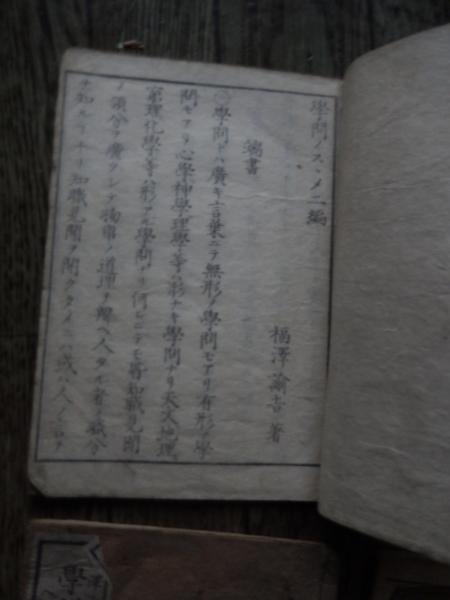 學問ノスヽメ二編
福澤諭吉著
端書
○學問トハ廣キ言葉ニテ無形ノ學問モアリ有形ノ學
問モアリ心學神學理學等ハ形ナキ學問ナリ天文地理
窮理化學等ハ形アル學問ナリ何レニテモ皆知識見聞
ノ領分ヲ廣クシテ物事ノ道理ヲ辨ヘ人タル者ノ職分
ヲ知ルヿナリ知識見聞ヲ開クタメニハ或ハ人ノ言ヲ
學